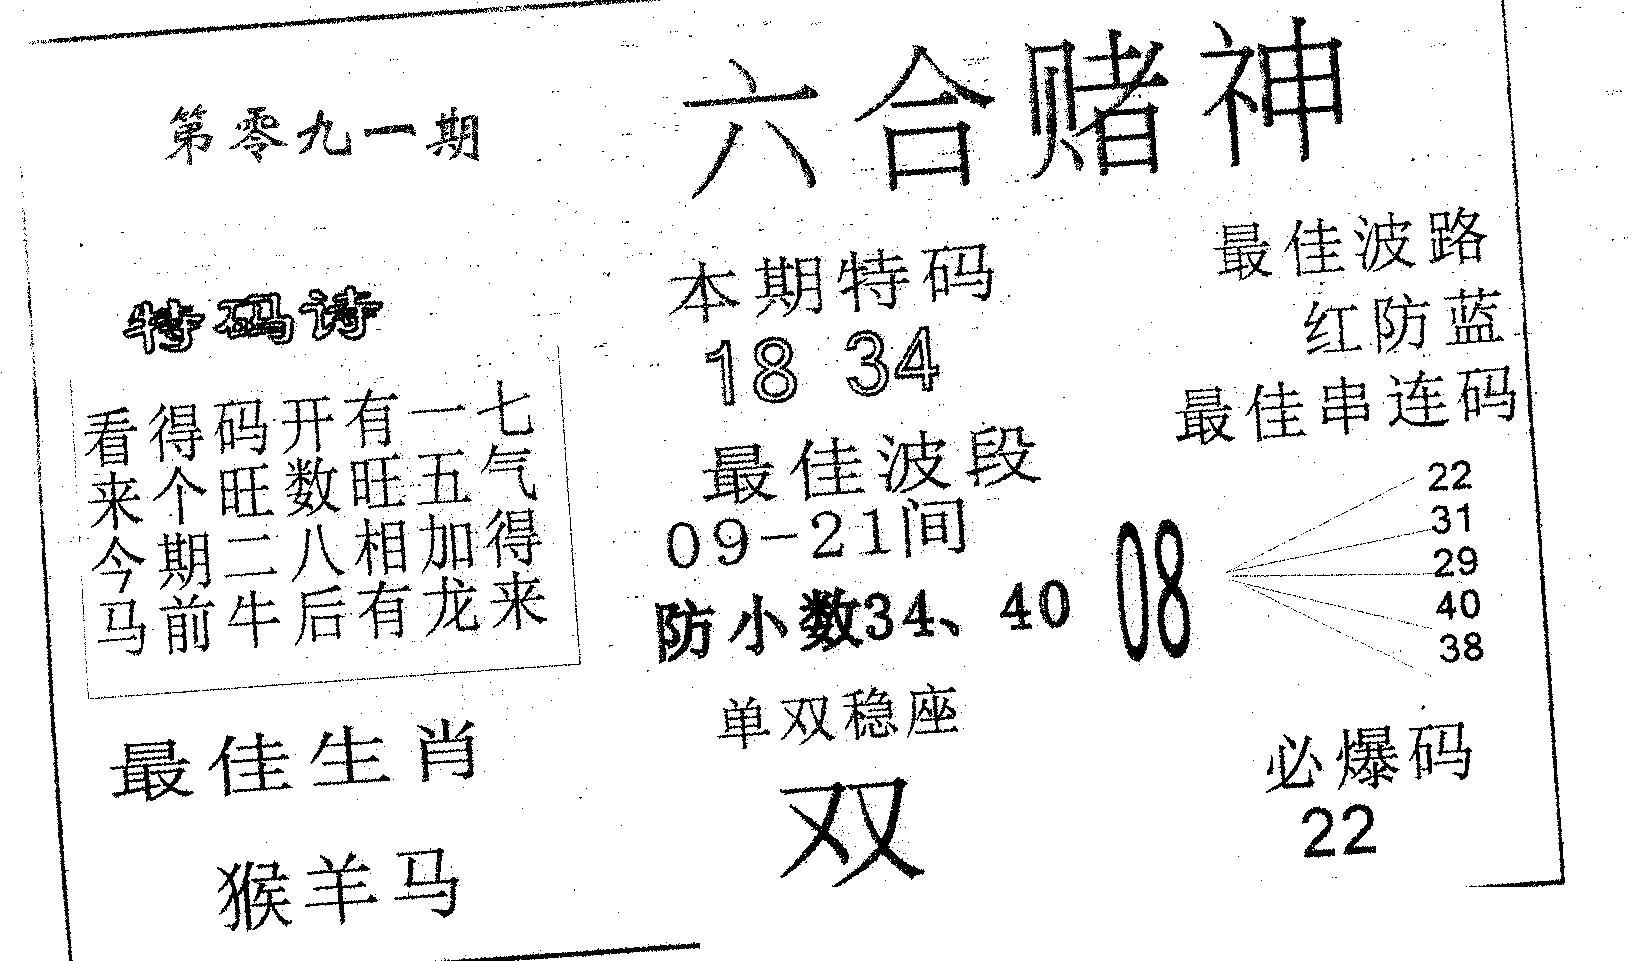 第零九一期
六合赌神
特码诗
看得码开有一七
来个旺数旺五气
今期二八相加得
马前牛后有龙来
最佳生肖
猴羊马
本期特码
18 34
最佳波段
09-21间
防小数34、40
单双稳座
双
最佳波路
红防蓝
最佳串连码
08
22
31
29
40
38
必爆码
22